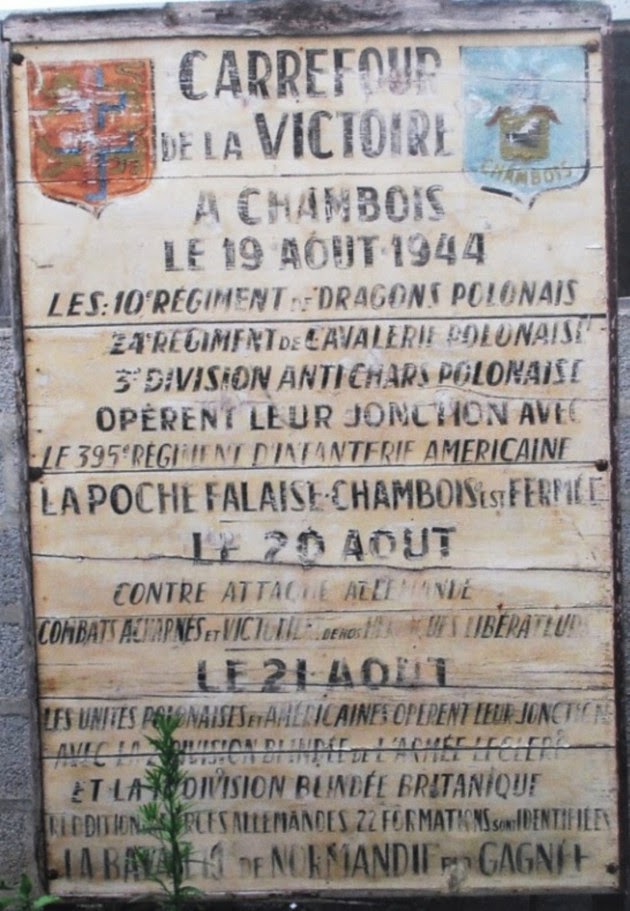 CARREFOUR
DE LA VICTOIRE
CHAMBOIS
A CHAMBOIS
LE 19 AOUT 1944
LES: 10e REGIMENT DE DRAGONS POLONAIS
24e REGIMENT DE CAVALERIE POLONAISE
3e DIVISION ANTICHARS POLONAISE
OPÈRENT LEUR JONCTION AVEC
LE 395e RÉGIMENT D'INFANTERIE AMERICAINE
LA POCHE FALAISE-CHAMBOIS EST FERMÉE
LE 20 AOUT
CONTRE ATTAQUE ALLEMANDE
COMBATS ACHARNÉS ET DE NOS LIBÉRATEURS
LE 21 AOUT
LES UNITÉS POLONAISES ET AMÉRICAINES OPÈRENT LEUR JONCTION
AVEC LA DIVISION BLINDÉE DE L'ARMÉE LECLERC
ET LA DIVISION BLINDÉE BRITANIQUE
REDDITION ALLEMANDES 22 FORMATIONS SONT IDENTIFIÉES
LA DE NORMANDIE EST GAGNÉE